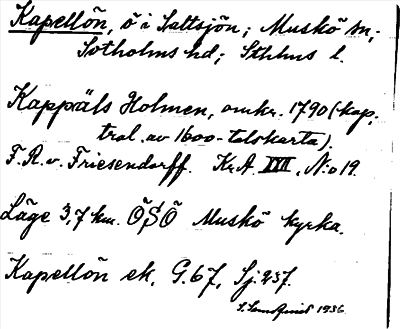 Kapellön, ö i Saltsjön; Muskö sn;
Sotholms hd; Sthlms l.
Kappäls Holmen, omkr. 1790 (kop.
trol. av 1600-talskarta).
F. R. v. Friesendorff. Kr.A. XVII, N:o 19.
Läge 3,7 km. ÖSÖ Muskö kyrka.
Kapellön ek. G. 67, Sj. 237.
S. Lundquist 1936.